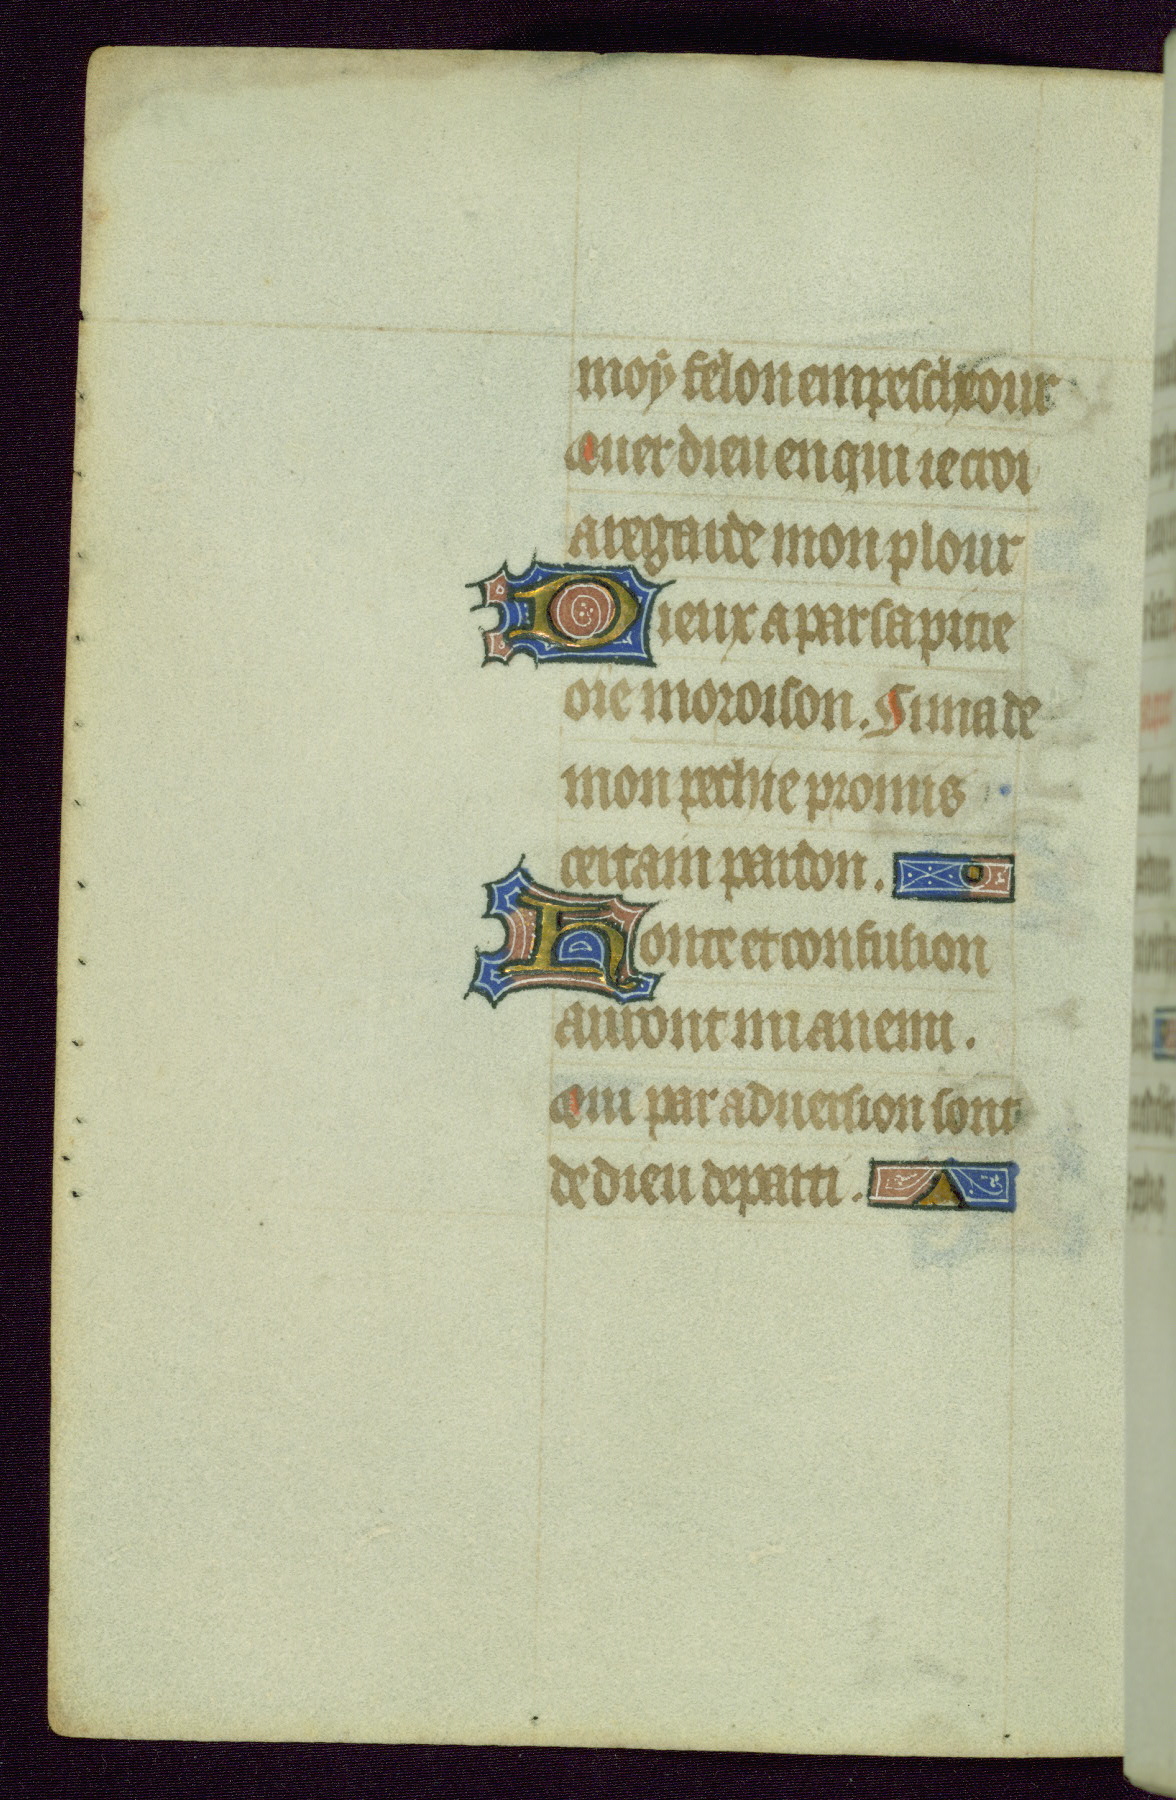 moy felon empescheour
Auer dieu en qui ie croi
a regarde mon plour
Dieux a par sa pitie
oie moroison. Si ma de
mon pechie promis
certain pardon.
Honte et confusion
auront mi anemi.
Qui par aduersion sont
de dieu departi.